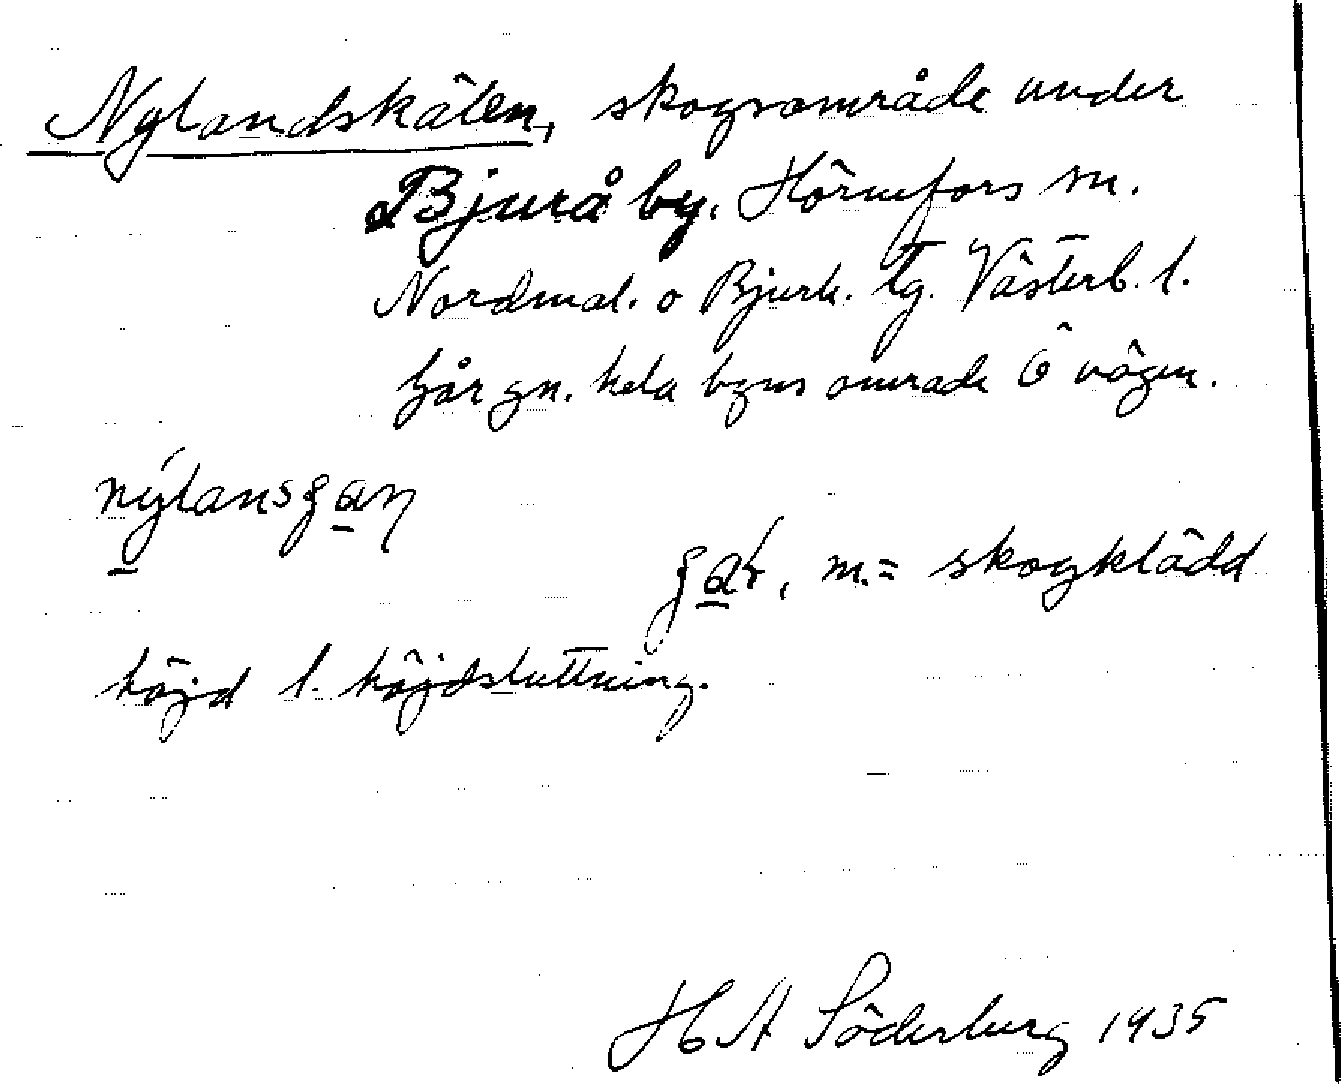 Nylandskälen, skogsområde under
Bjurå by. Hörnefors sn.
Nordmal. o Bjurh. tg. Västerb. l.
Går gn. hela byns område Ö vägen.
nýlansʃan
ʃaɫ, m.= skogklädd
höjd l. höjdsluttning.
H A Söderberg 1935